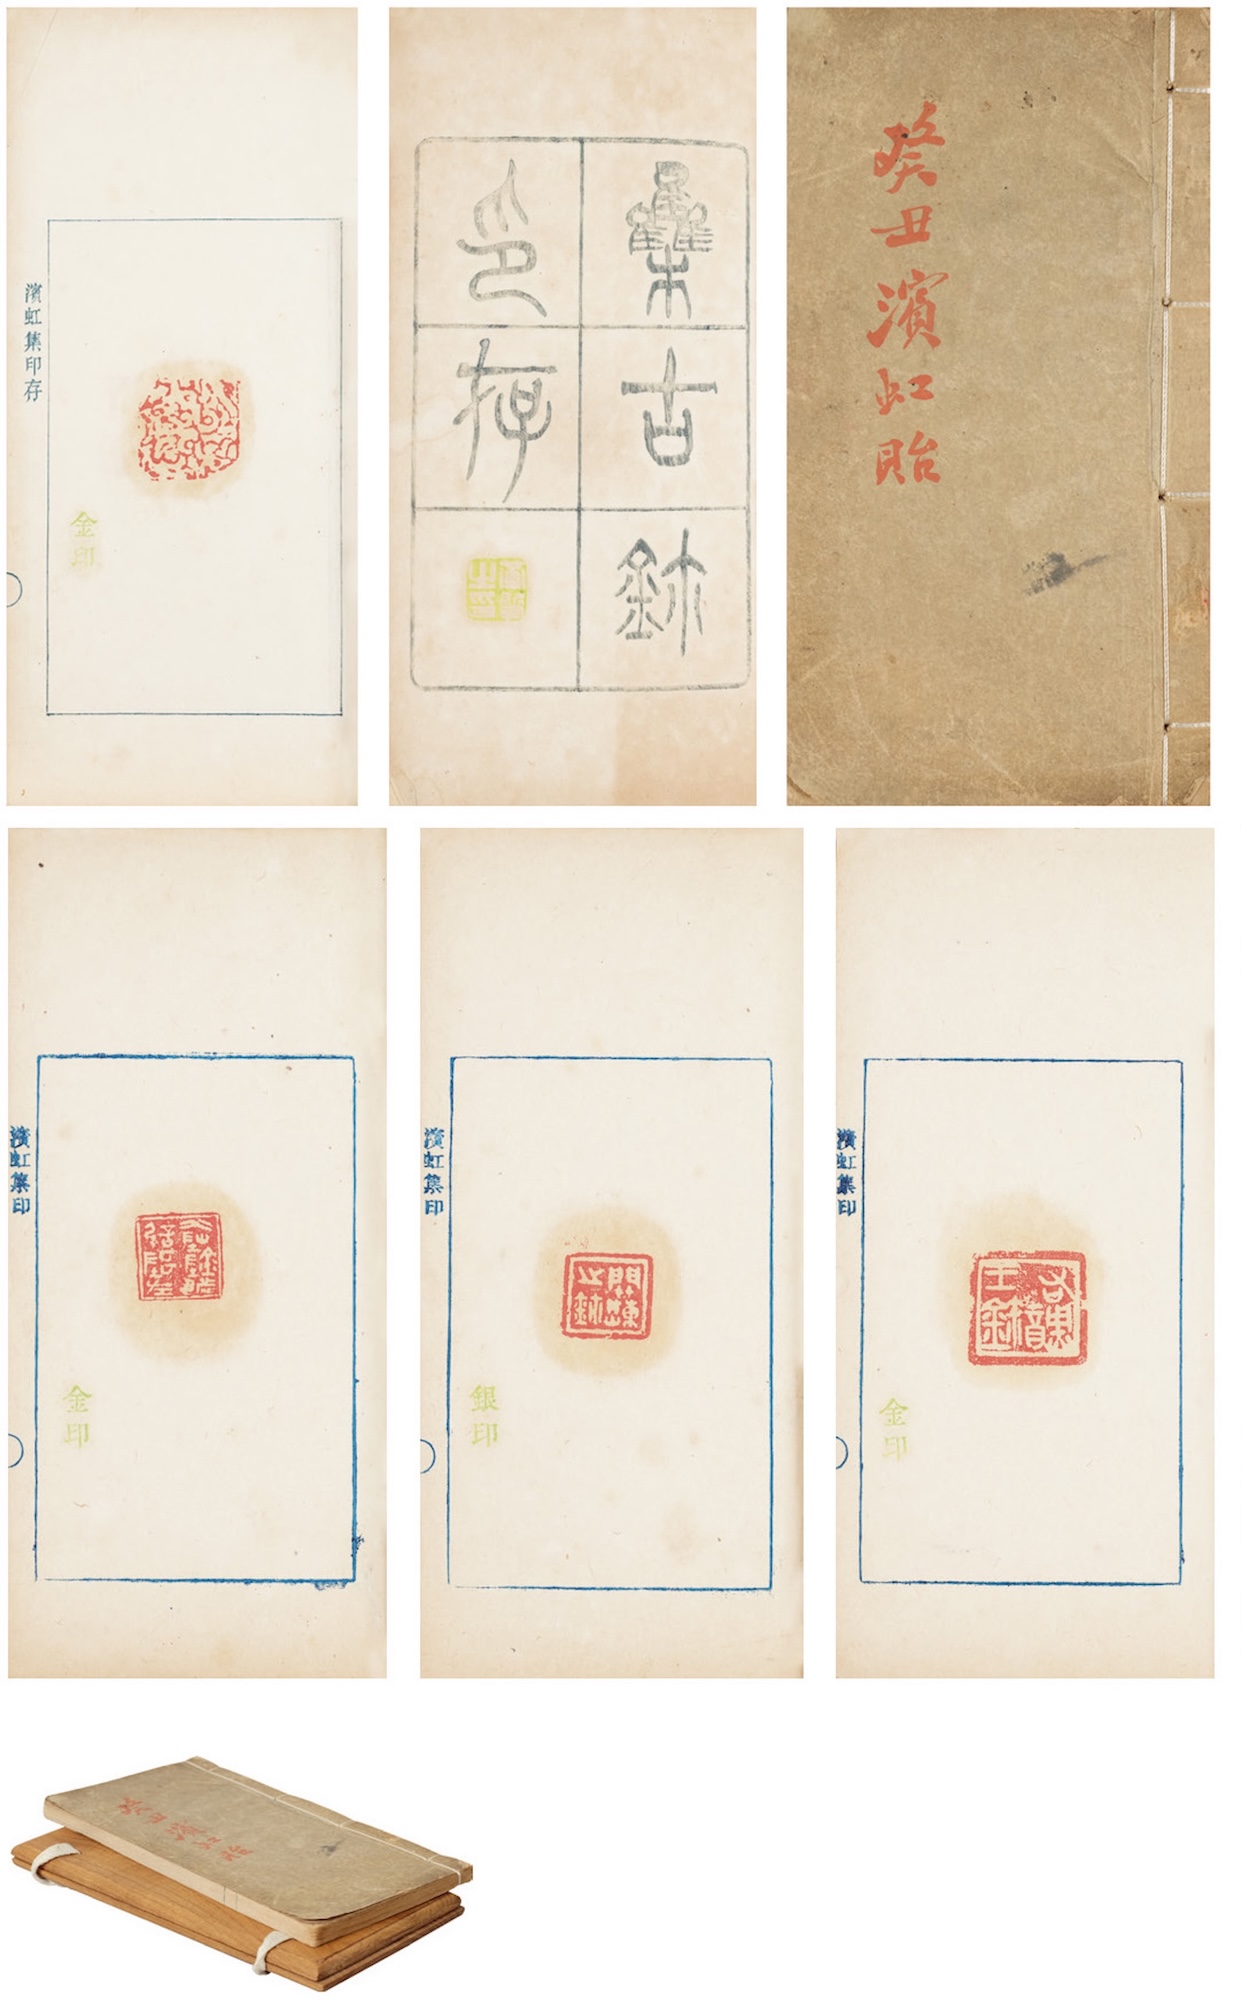 癸丑濱虹貽
集古鉥
印存
濱虹集印存
金印
濱虹集印
金印
濱虹集印
銀印
之鉥
濱虹集印
金印
癸丑濱虹貽